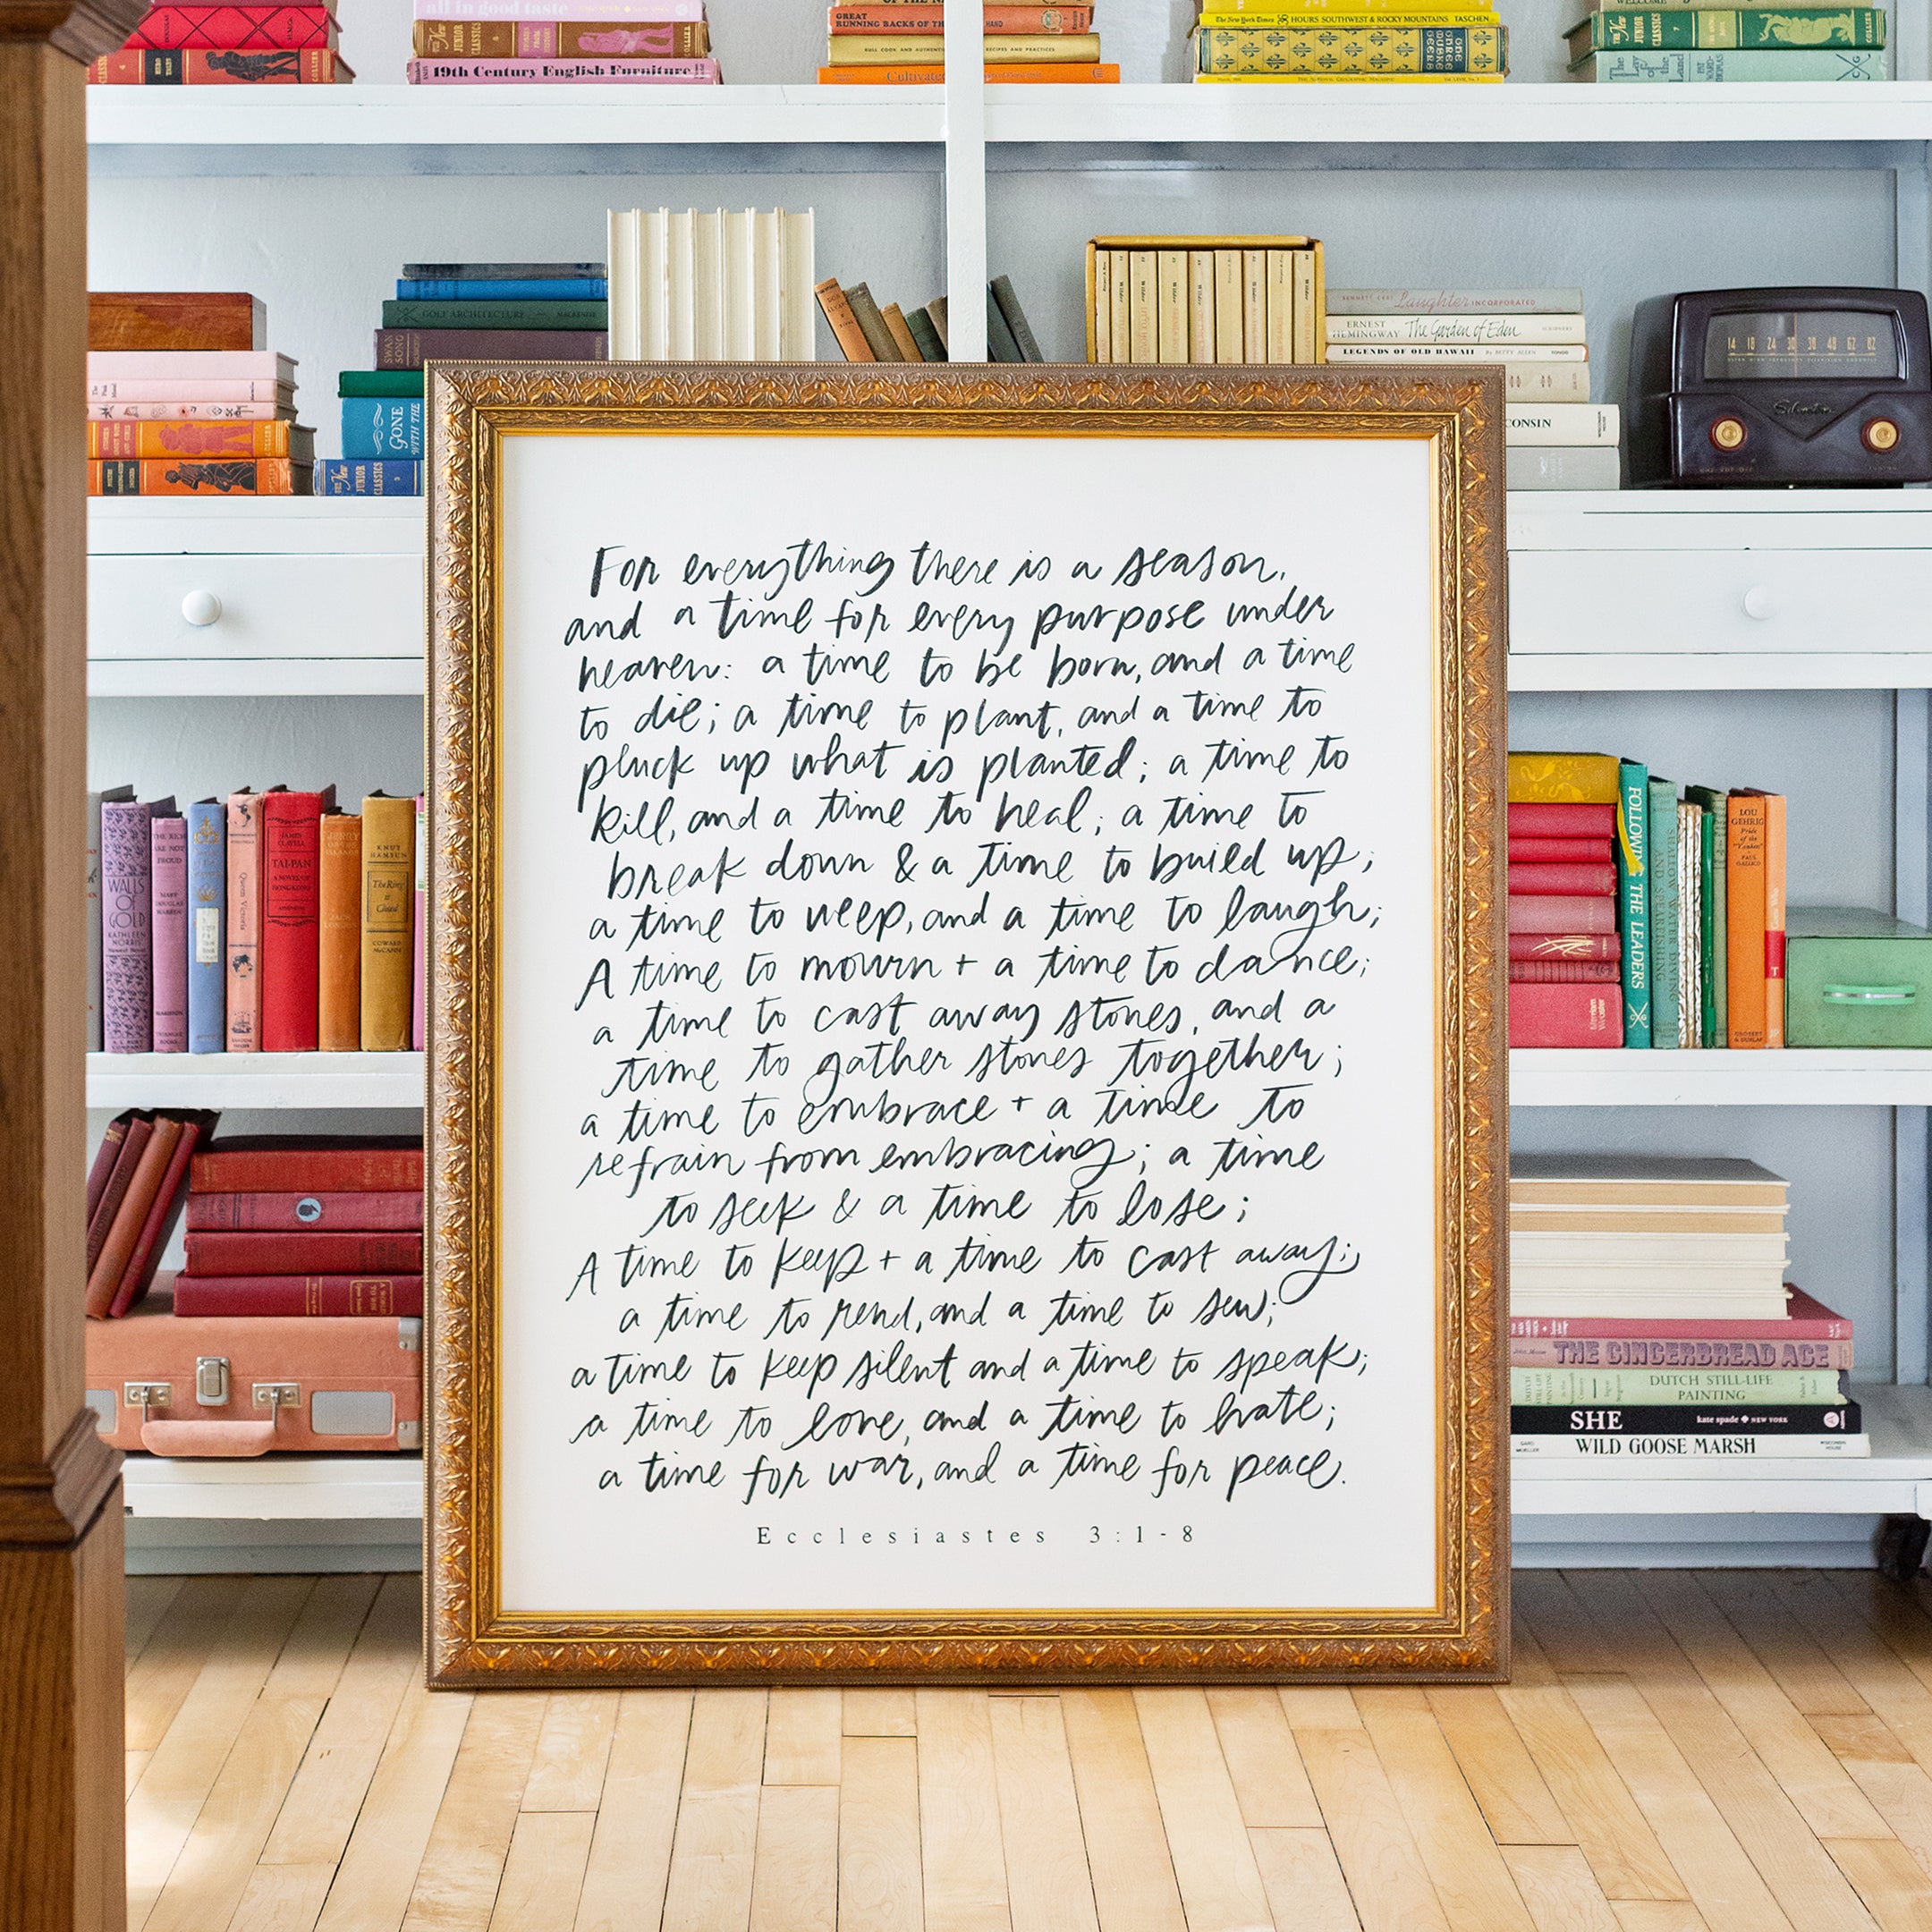 all in good taste
The New JUNIOR CLASSICS
COLLIER
19th Century English Furniture
GREAT RUNNING BACKS OF THE HAND
RECIPES AND PRACTICES
Cultivated
The New York Times HOURS SOUTHWEST & ROCKY MOUNTAINS TASCHEN
The New JUNIOR CLASSICS 7 COLLIER
The Lay of the Land
GOLF ARCHITECTURE MACKENZIE
SWAN SONG
GONE WITH THE
The New JUNIOR CLASSICS
COLLIER
Wilder
BENNETT CERF Laughter INCORPORATED
ERNEST HEMINGWAY The Garden of Eden SCRIBNERS
LEGENDS OF OLD HAWAII By BETTY ALLEN
CONSIN
14 18 24 30 38 48 62 82
Silvertone
For everything there is a season,
and a time for every purpose under
heaven: a time to be born, and a time
to die; a time to plant, and a time to
pluck up what is planted; a time to
kill, and a time to heal; a time to
break down & a time to build up;
a time to weep, and a time to laugh;
A time to mourn + a time to dance;
a time to cast away stones, and a
time to gather stones together;
a time to embrace + a time to
refrain from embracing; a time
to seek & a time to lose;
A time to keep + a time to cast away;
a time to rend, and a time to sew;
a time to keep silent and a time to speak;
a time to love, and a time to hate;
a time for war, and a time for peace.
Ecclesiastes 3:1-8
WALLS OF GOLD KATHLEEN NORRIS
THE RICH ARE NOT PROUD
Queen Victoria
JAMES CLAVELL TAI-PAN A NOVEL OF HONG KONG
KNUT HAMSUN The Ring is Closed COWARD McCANN
FOLLOW THE LEADERS
SHALLOW WATER DIVING AND SPEARFISHING
LOU GEHRIG Pride of the "Yankees" PAUL GALLICO
THE GINGERBREAD AGE
DUTCH STILL-LIFE PAINTING
SHE kate spade NEW YORK
WILD GOOSE MARSH